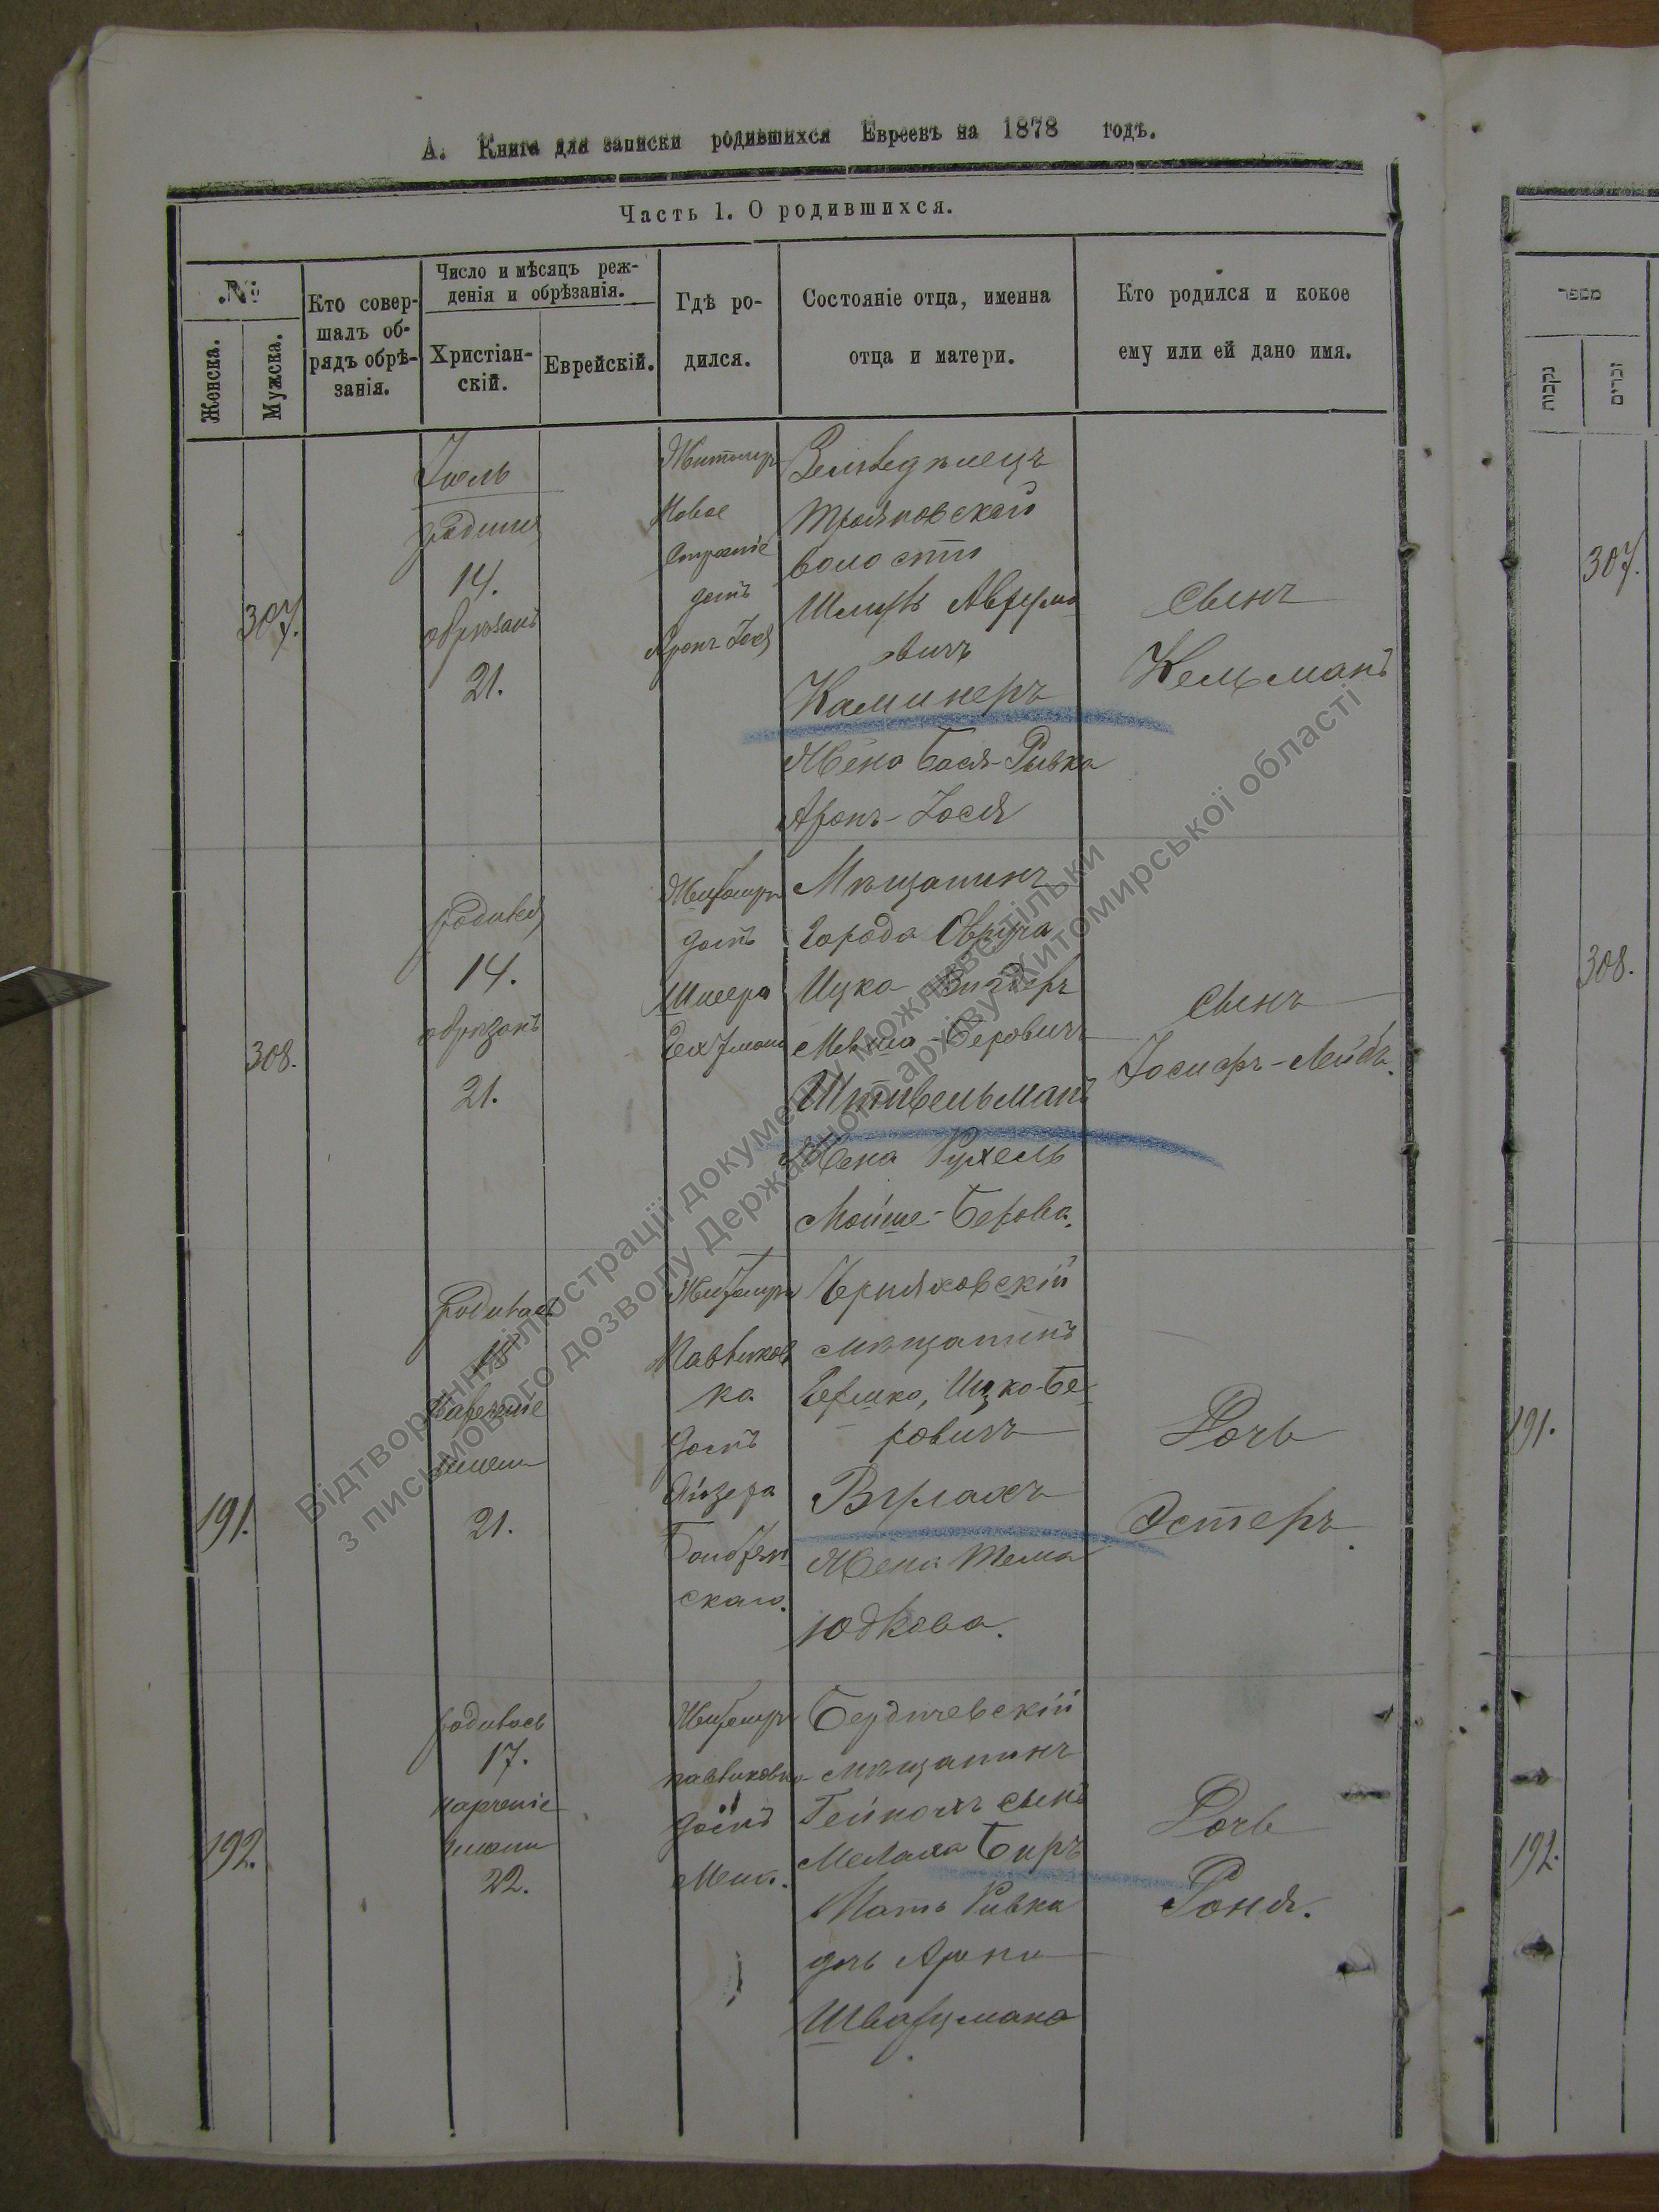 А. Книга для записки родившихся Евреевъ на 1878 годъ.
Часть 1. О родившихся.
№
Женска.
Мужска.
Кто совер-
шалъ об-
рядъ обрѣ-
занія.
Число и мѣсяцъ реж-
денія и обрѣзанія.
Христіан-
скій.
Еврейскій.
Гдѣ ро-
дился.
Состояніе отца, именна
отца и матери.
Кто родился и кокое
ему или ей дано имя.
307.
Іюль
родился
14.
обрѣзанъ
21.
Житомиръ
Новое
Строеніе
домъ
Аронъ Іося
Земледѣлецъ
Трояновской
волости
Аврумо
вичъ
Каминеръ
Жена Бася-Ривка
Аронъ-Іося
Сынъ
Кельманъ
308.
родился
14.
обрѣзанъ
21.
Житомиръ
домъ
Шмера
Мѣщанинъ
города Овруча
Ицко
Беровичъ
Штивельманъ
Жена Рухель
Мойше-Берова.
Сынъ
Іосифъ-Лейбъ.
191.
родилась
нареченіе
имени
21.
Житомиръ
Павликов
ка
домъ
Лейзера
скаго.
Черняховскій
мѣщанинъ
Гершко, Ицко-Бе-
ровичъ
Вурлахъ
Жена Тема
Юдкова.
Дочь
Эстеръ.
192.
родилась
17.
нареченіе
имени
22.
Житомиръ
павликовка
домъ
Бердичевскій
мѣщанинъ
Гейнохъ сынъ
Мелаха Биръ
Мать Ривка
дочь Арона
Шварцмана
Дочь
Роня.
מספר
נקבות
זכרים
307.
308.
191.
192.
Відтворення ілюстрації документу можливе тільки
з письмового дозволу Державного архіву Житомирської області